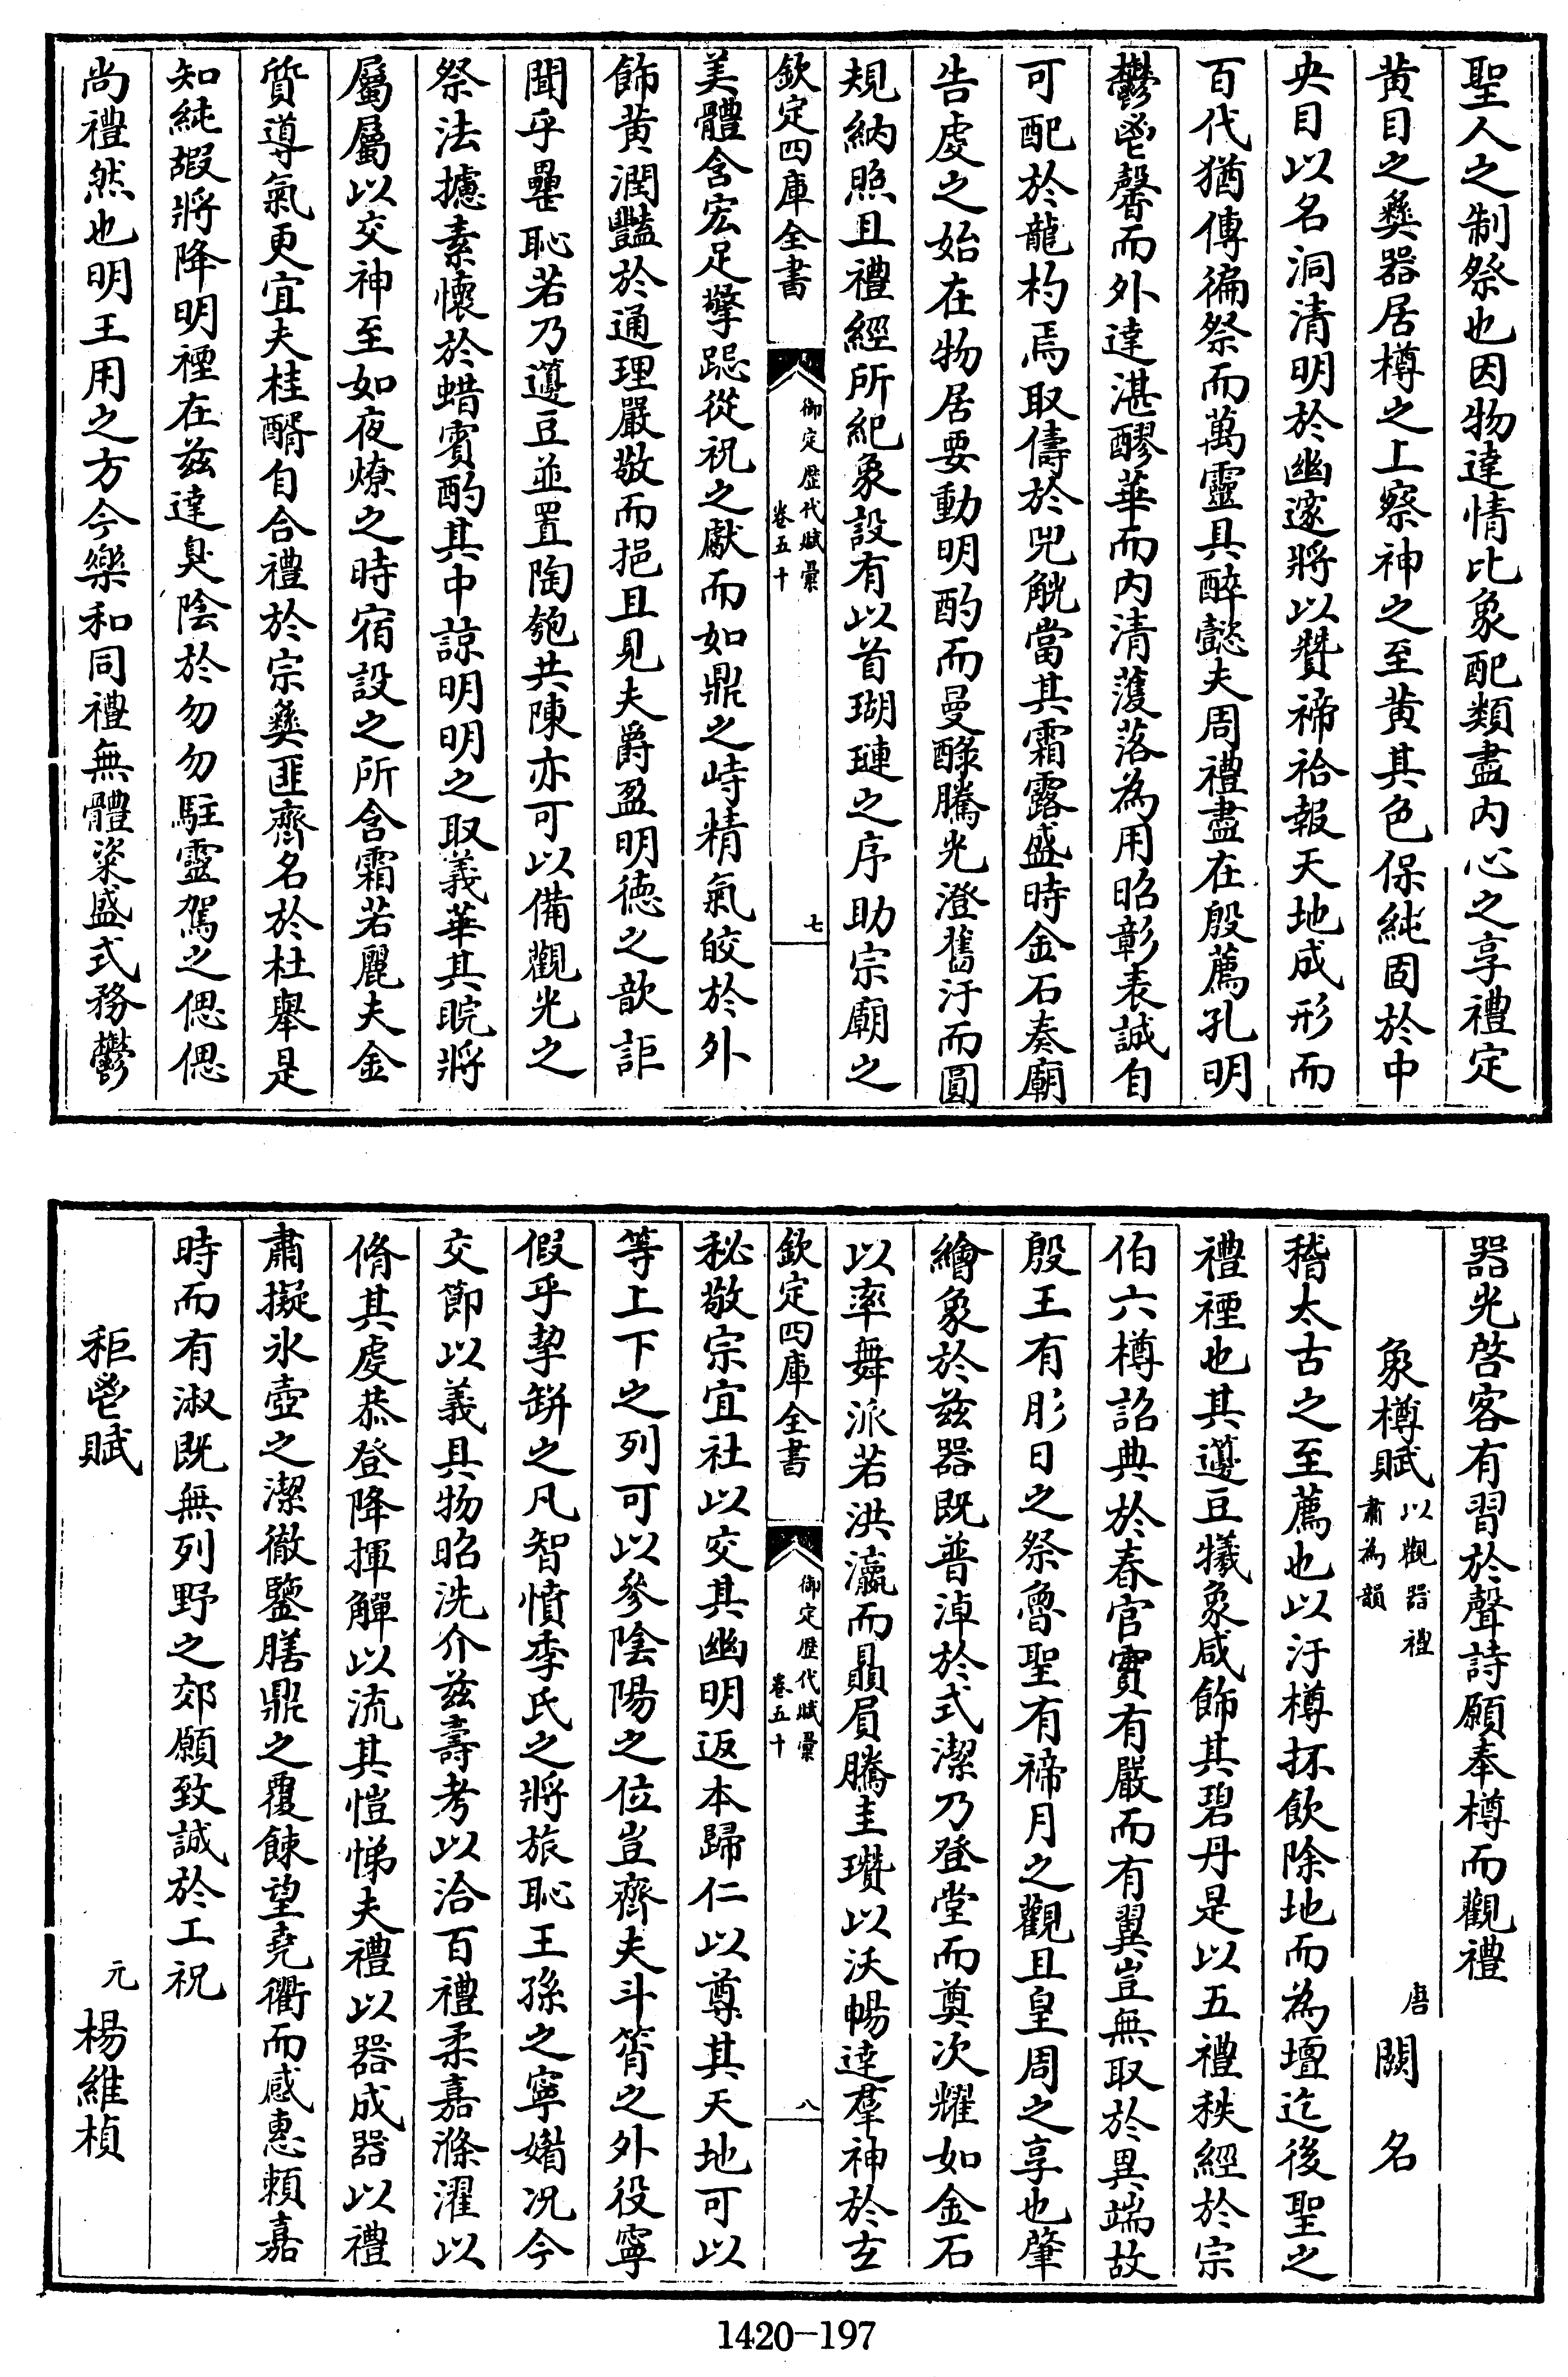 聖人之制祭也因物達情比象配類盡内心之享禮定
黄目之彝器居樽之上察神之至黄其色保純固於中
央目以名洞清明於幽邃將以贊禘祫報天地成形而
百代猶傳徧祭而萬靈具醉懿夫周禮盡在殷薦孔明
鬱鬯馨而外達湛醪華而内清薀落為用昭彰表誠自
可配於龍杓焉取儔於兕觥當其霜露盛時金石奏廟
告虔之始在物居要動明酌而曼醁騰光澄舊汙而圓
規納照且禮經所紀象設有以首瑚璉之序助宗廟之
欽定四庫全書
御定歷代賦彙
卷五十
七
美體含宏足擎跽從祝之獻而如鼎之峙精氣皎於外
飾黄潤豔於通理嚴敬而挹且見夫爵盈明徳之歆詎
聞乎罍恥若乃籩豆並置陶匏共陳亦可以備觀光之
祭法攄素懷於蜡賓酌其中諒明明之取義華其睆將
屬屬以交神至如夜燎之時宿設之所含霜若麗夫金
質導氣更宜夫桂醑自合禮於宗彝匪齊名於杜舉是
知純嘏將降明禋在兹達臭陰於勿勿駐靈駕之偲偲
尚禮然也明王用之方今樂和同禮無體粢盛式務鬱
器光啓客有習於聲詩願奉樽而觀禮
象樽賦
以觀器禮
肅為韻
唐
闕名
稽太古之至薦也以汙樽抔飲除地而為壇迄後聖之
禮禋也其籩豆犧象咸飾其碧丹是以五禮秩經於宗
伯六樽詔典於春官實有嚴而有翼豈無取於異端故
殷王有肜日之祭魯聖有禘月之觀且皇周之享也肇
繪象於兹器既普淖於式潔乃登堂而奠次耀如金石
以率舞派若洪瀛而贔屓騰圭瓚以沃暢達羣神於玄
欽定四庫全書
御定歷代賦彙
卷五十
八
秘敬宗宜社以交其幽明返本歸仁以尊其天地可以
等上下之列可以參陰陽之位豈齊夫斗筲之外役寧
假乎挈缾之凡智憤季氏之將旅恥王孫之寧媚况今
交節以義具物昭洗介兹壽考以洽百禮柔嘉滌濯以
脩其虔恭登降揮觶以流其愷悌夫禮以器成器以禮
肅擬氷壺之潔徹鑒膳鼎之覆餗望堯衢而感惠頼嘉
時而有淑既無列野之郊願致誠於工祝
秬鬯賦
元
楊維楨
1420-197